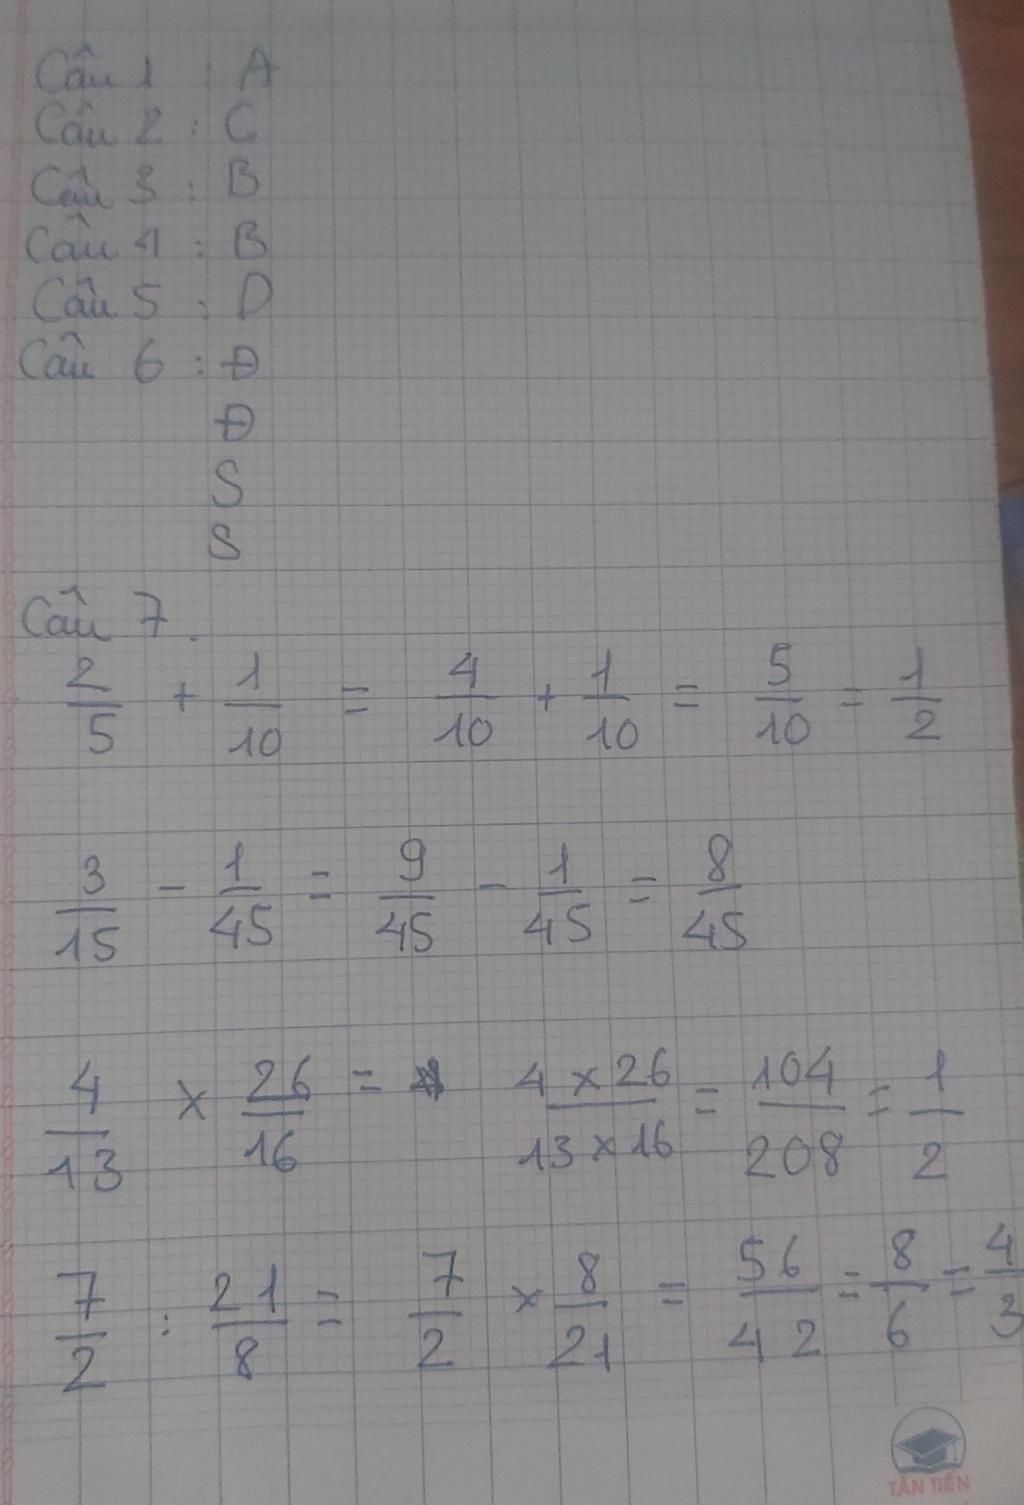 Câu 1 : A
Câu 2 : C
Câu 3 : B
Câu 4 : B
Câu 5 : D
Câu 6 : Đ
Đ
S
S
Câu 7.
2/5 + 1/10 = 4/10 + 1/10 = 5/10 = 1/2
3/15 - 1/45 = 9/45 - 1/45 = 8/45
4/13 × 26/16 = 4 × 26/13 × 16 = 104/208 = 1/2
7/2 : 21/8 = 7/2 × 8/21 = 56/42 = 8/6 = 4/3
TÂN TIẾN